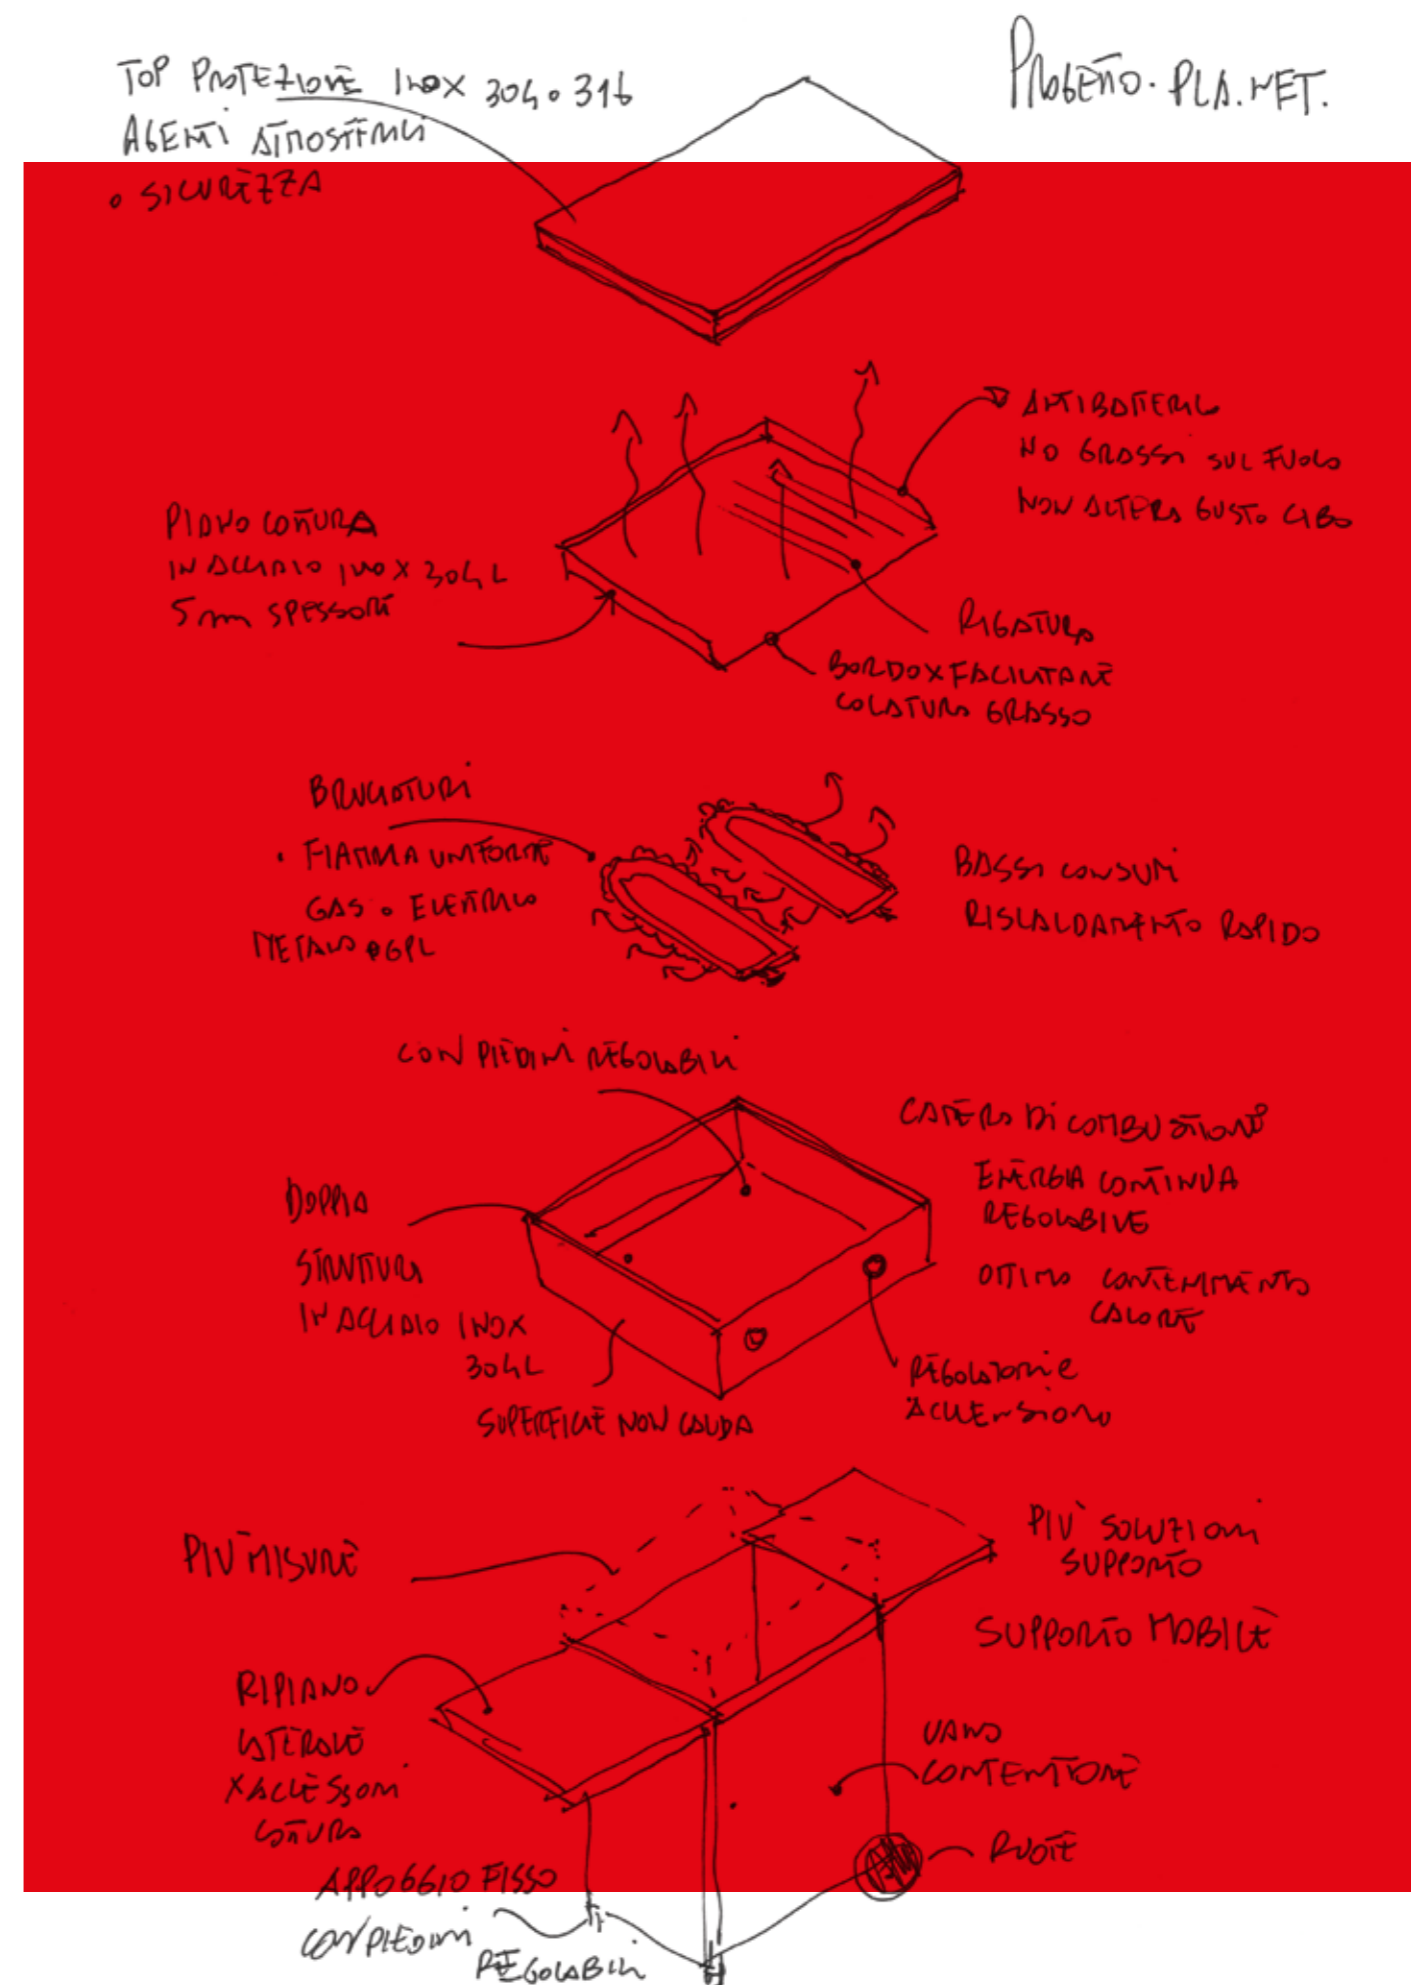 TOP PROTEZIONE INOX 304 o 316
AGENTI ATMOSFERICI
o SICUREZZA
PROGETTO. PLA.NET.
ANTIBATTERICO
NO GRASSI SUL FUOCO
NON ALTERA GUSTO CIBO
PIANO COTTURA
IN ACCIAIO INOX 304L
5 mm SPESSORE
RIGATURA
BORDO X FACILITARE
COLATURA GRASSO
BRUCIATORI
• FIAMMA UNIFORME
GAS o ELETTRICO
METANO o GPL
BASSI CONSUMI
RISCALDAMENTO RAPIDO
CON PIEDINI REGOLABILI
CAMERA DI COMBUSTIONE
ENERGIA CONTINUA
REGOLABILE
OTTIMO CONTENIMENTO
CALORE
DOPPIA
STRUTTURA
IN ACCIAIO INOX
304L
SUPERFICIE NON CALDA
REGOLATORI E
ACCENSIONE
PIU' MISURE
PIU' SOLUZIONI
SUPPORTO
SUPPORTO MOBILE
RIPIANO
LATERALE
X ACCESSORI
COTTURA
VANO
CONTENITORE
RUOTE
APPOGGIO FISSO
CON PIEDINI
REGOLABILI